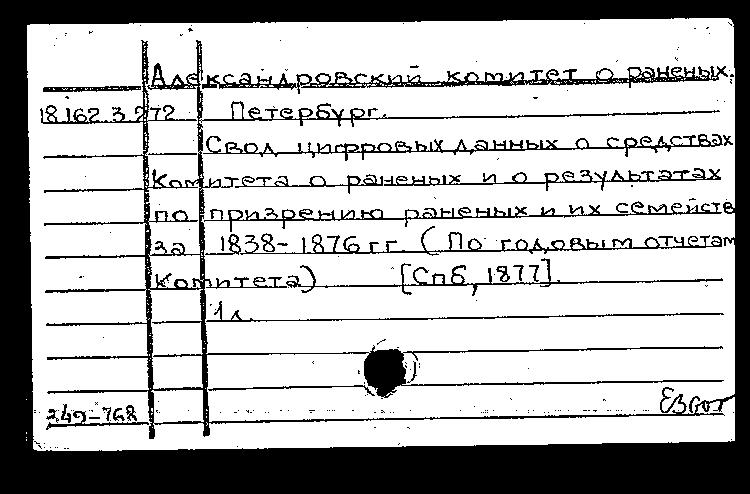 Александровский комитет о раненых.
18.162.3.272 Петербург.
Свод цифровых данных о средствах
Комитета о раненых и о результатах
по призрению раненых и их семейств
за 1838-1876 гг (По годовым отчетам
Комитета) [Спб, 1877].
1 л.
249-768